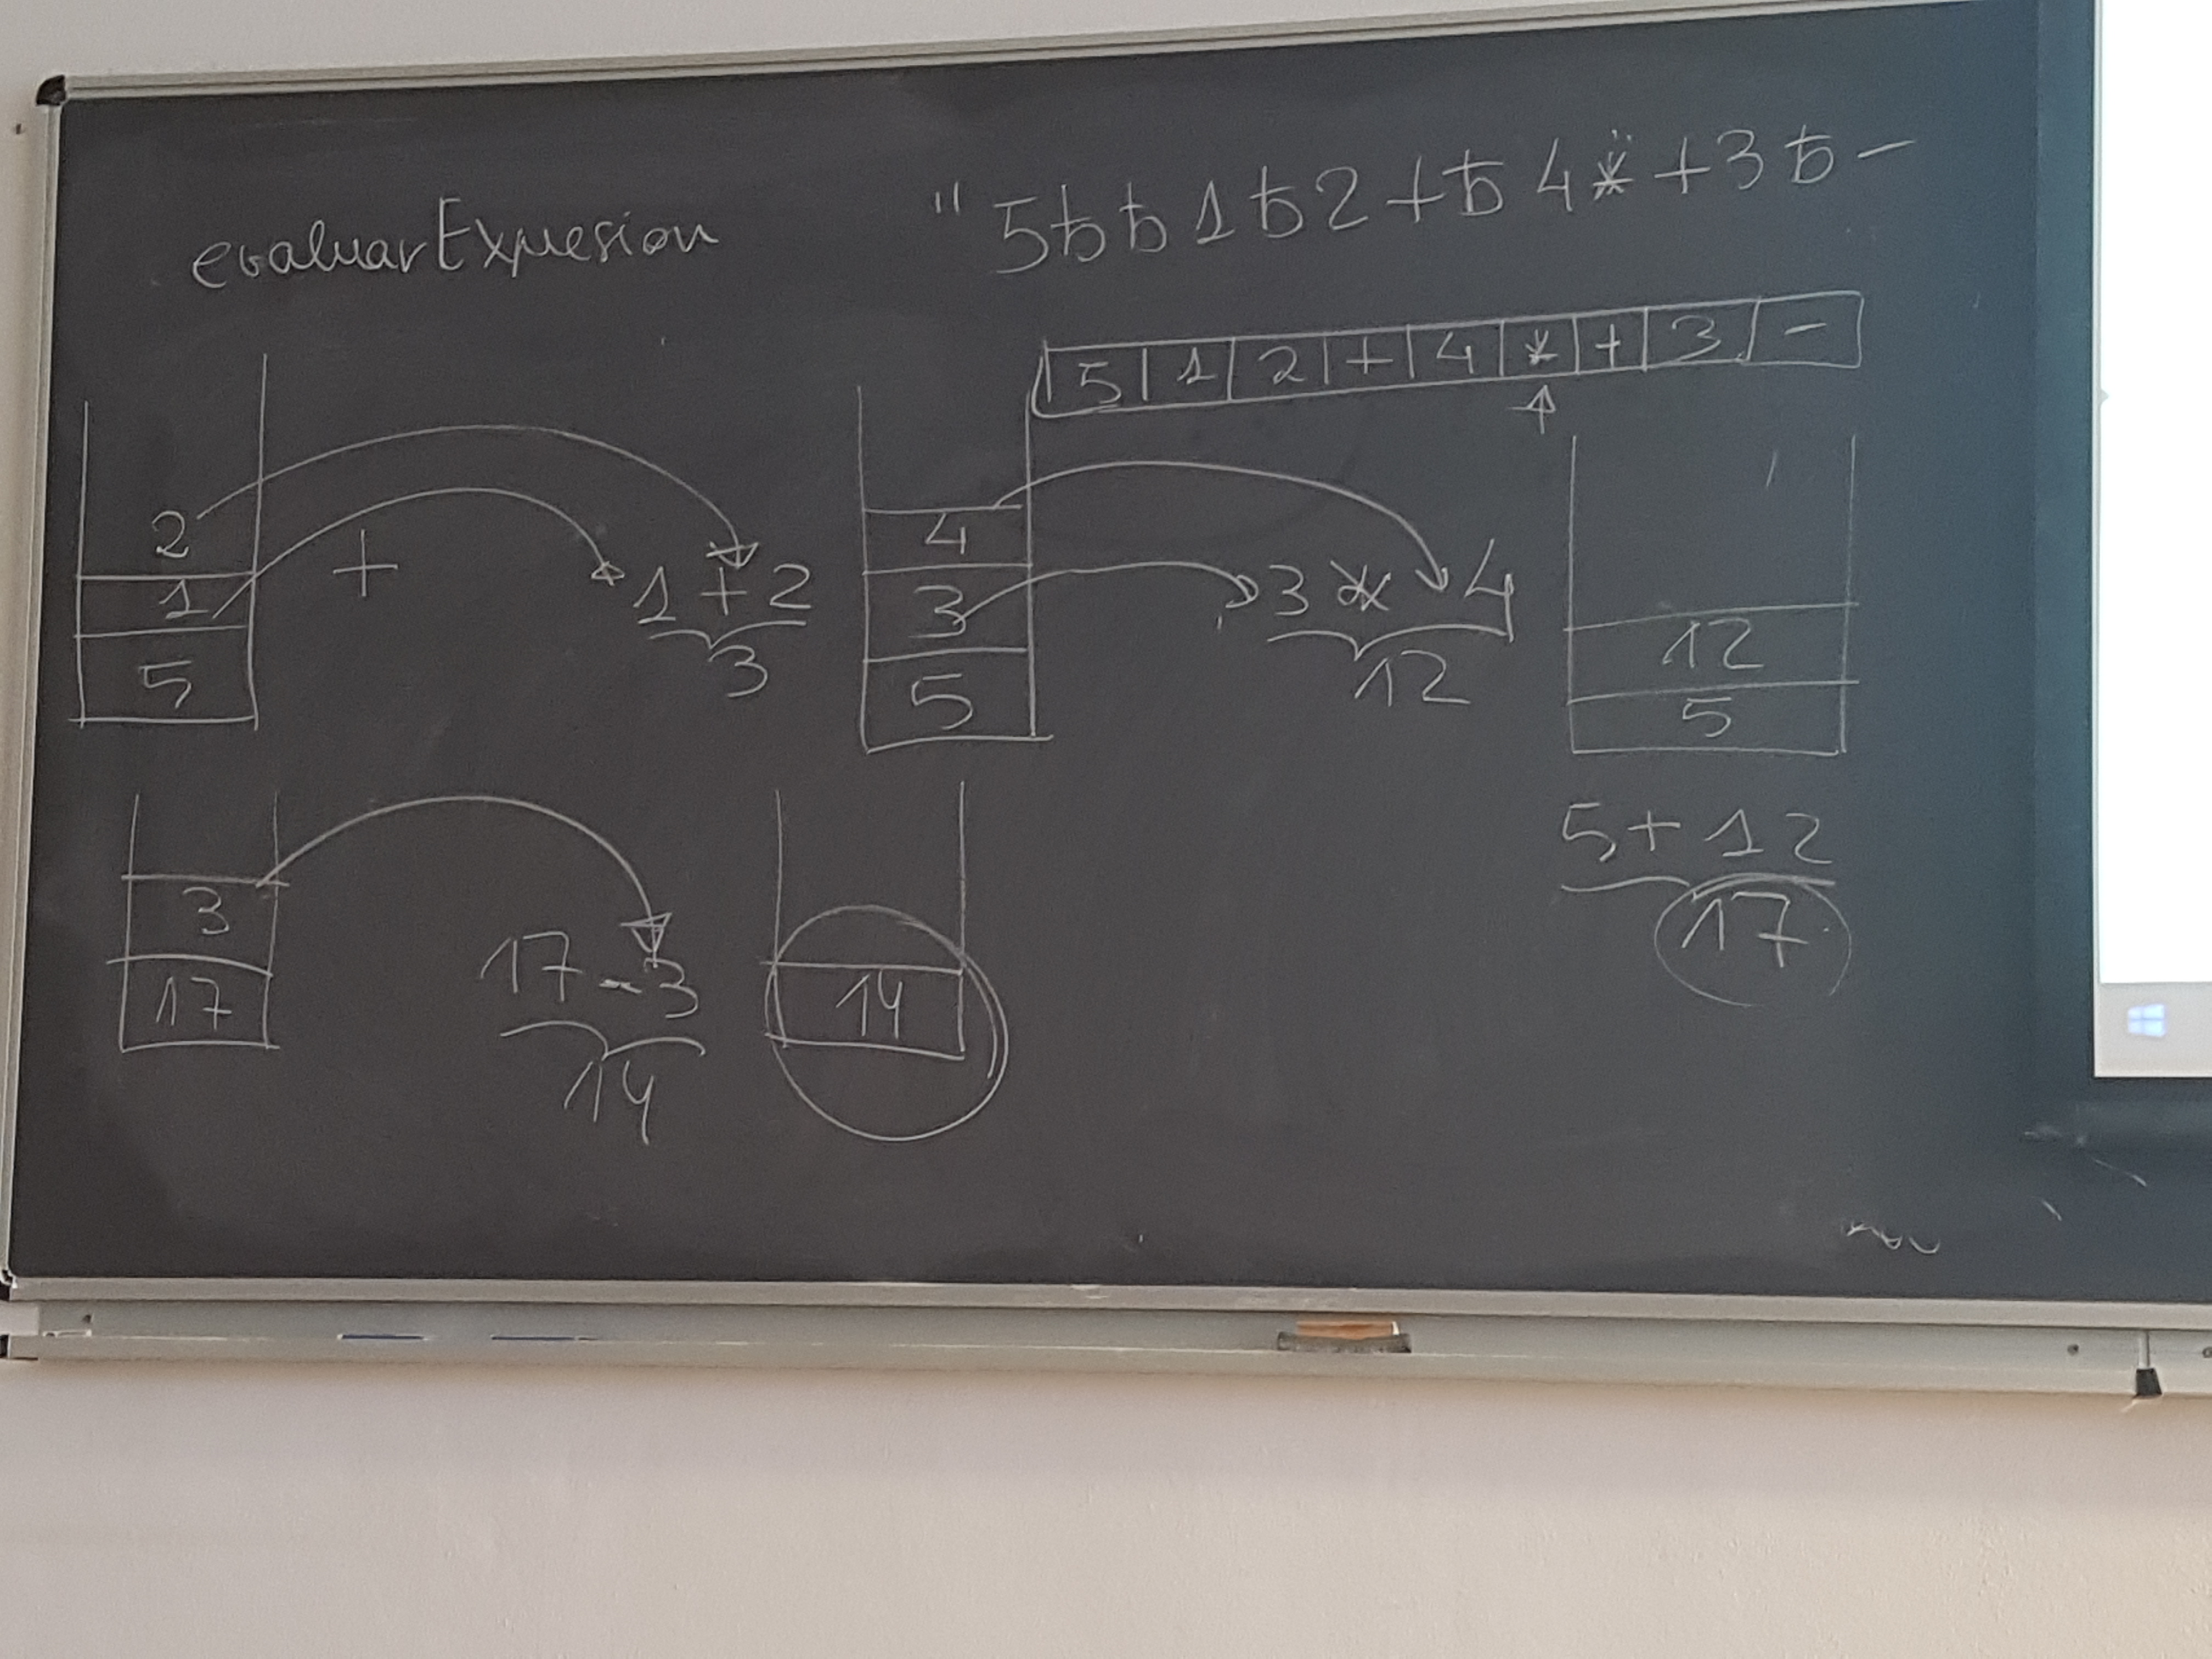 evaluarExpresion
" 5ƀƀ1ƀ2+ƀ4*+3ƀ-
5 1 2 + 4 * + 3 -
2
1
5
+
1 + 2
3
4
3
5
3 * 4
12
12
5
5 + 12
17
3
17
17 - 3
14
14